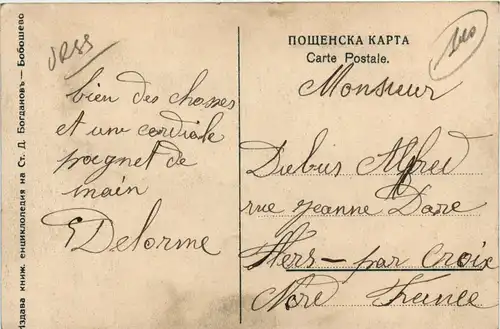 Издава книж. енциклопедия на Ст. Д. Богдановъ — Бобошево
ПОЩЕНСКА КАРТА
Carte Postale.
bien des choses
et une cordiale
poignet de
main
Delorme
Monsieur
Dubus Alfred
rue Jeanne Darc
Hers - par Croix
Nord France